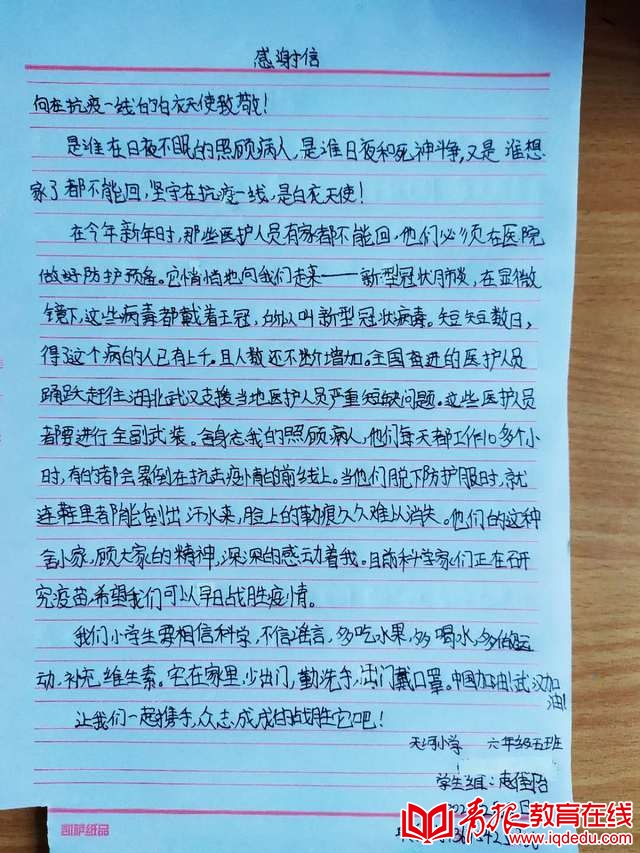 感谢信
向在抗疫一线的白衣天使致敬!
是谁在日夜不眠的照顾病人,是谁日夜和死神斗争,又是谁想
家了都不能回,坚守在抗疫一线,是白衣天使!
在今年新年时,那些医护人员有家都不能回,他们必须在医院
做好防护预备。它悄悄地向我们走来——新型冠状肺炎,在显微
镜下,这些病毒都戴着王冠,所以叫新型冠状病毒。短短数日,
得了这个病的人已有上千。且人数还不断增加。全国奋进的医护人员
踊跃赶往湖北武汉支援当地医护人员严重短缺问题。这些医护员
都要进行全副武装。舍身忘我的照顾病人,他们每天都工作10多个小
时,有的都会累倒在抗击疫情的前线上。当他们脱下防护服时,就
连鞋里都能倒出汗水来,脸上的勒痕久久难以消失。他们的这种
舍小家,顾大家的精神,深深的感动着我。目前科学家们正在研
究疫苗,希望我们可以早日战胜疫情。
我们小学生要相信科学,不信谣言,多吃水果,多喝水,多做运
动,补充维生素。宅在家里,少出门,勤洗手,出门戴口罩。中国加油!武汉加
油!
让我们一起携手,众志成城的战胜它吧!
小学 六年级五班
学生组:赵
凯萨纸品
青报教育在线
www.iqdedu.com